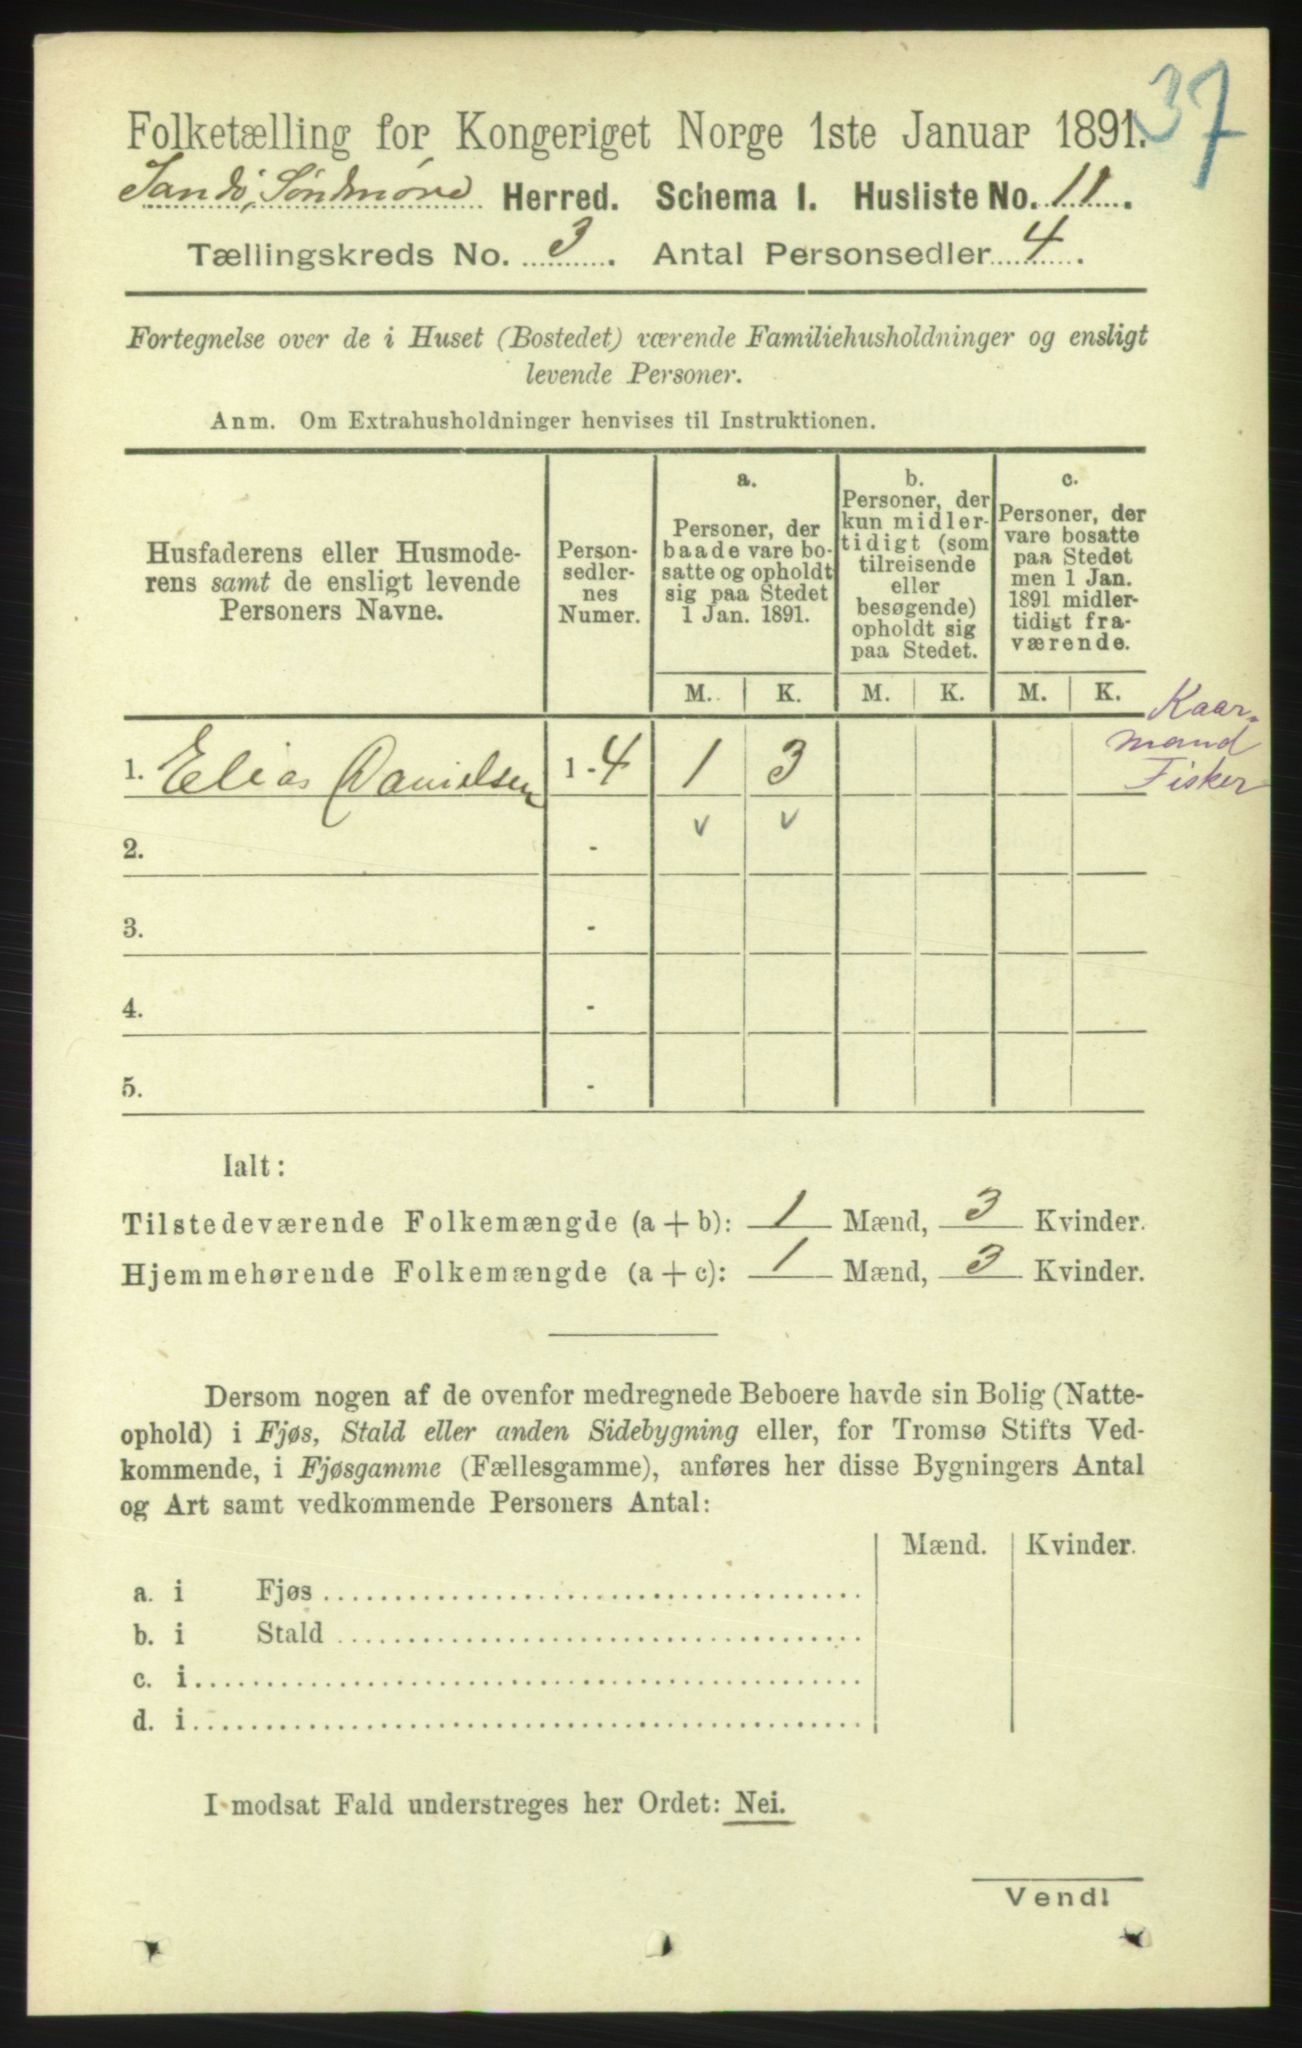 37
Folketælling for Kongeriget Norge 1ste Januar 1891.
Sandø, Søndmøre Herred. Schema I. Husliste No. 11.
Tællingskreds No. 3. Antal Personsedler 4.
Fortegnelse over de i Huset (Bostedet) værende Familiehusholdninger og ensligt
levende Personer.
Anm. Om Extrahusholdninger henvises til Instruktionen.
Husfaderens eller Husmode-
rens samt de ensligt levende
Personers Navne.
Person-
sedler-
nes
Numer.
a.
Personer, der
baade vare bo-
satte og opholdt
sig paa Stedet
1 Jan. 1891.
b.
Personer, der
kun midler-
tidigt (som
tilreisende
eller
besøgende)
opholdt sig
paa Stedet.
c.
Personer, der
vare bosatte
paa Stedet
men 1 Jan.
1891 midler-
tidigt fra-
værende.
M. K. M. K. M. K.
Kaar-
mand
Fisker
1. Elias Danielsen 1 - 4 1 3
v v
2. -
3. -
4. -
5. -
Ialt:
Tilstedeværende Folkemængde (a + b): 1 Mænd, 3 Kvinder.
Hjemmehørende Folkemængde (a + c): 1 Mænd, 3 Kvinder.
Dersom nogen af de ovenfor medregnede Beboere havde sin Bolig (Natte-
ophold) i Fjøs, Stald eller anden Sidebygning eller, for Tromsø Stifts Ved-
kommende, i Fjøsgamme (Fællesgamme), anføres her disse Bygningers Antal
og Art samt vedkommende Personers Antal:
Mænd. Kvinder.
a. i Fjøs
b. i Stald
c. i
d. i
I modsat Fald understreges her Ordet: Nei.
Vend!